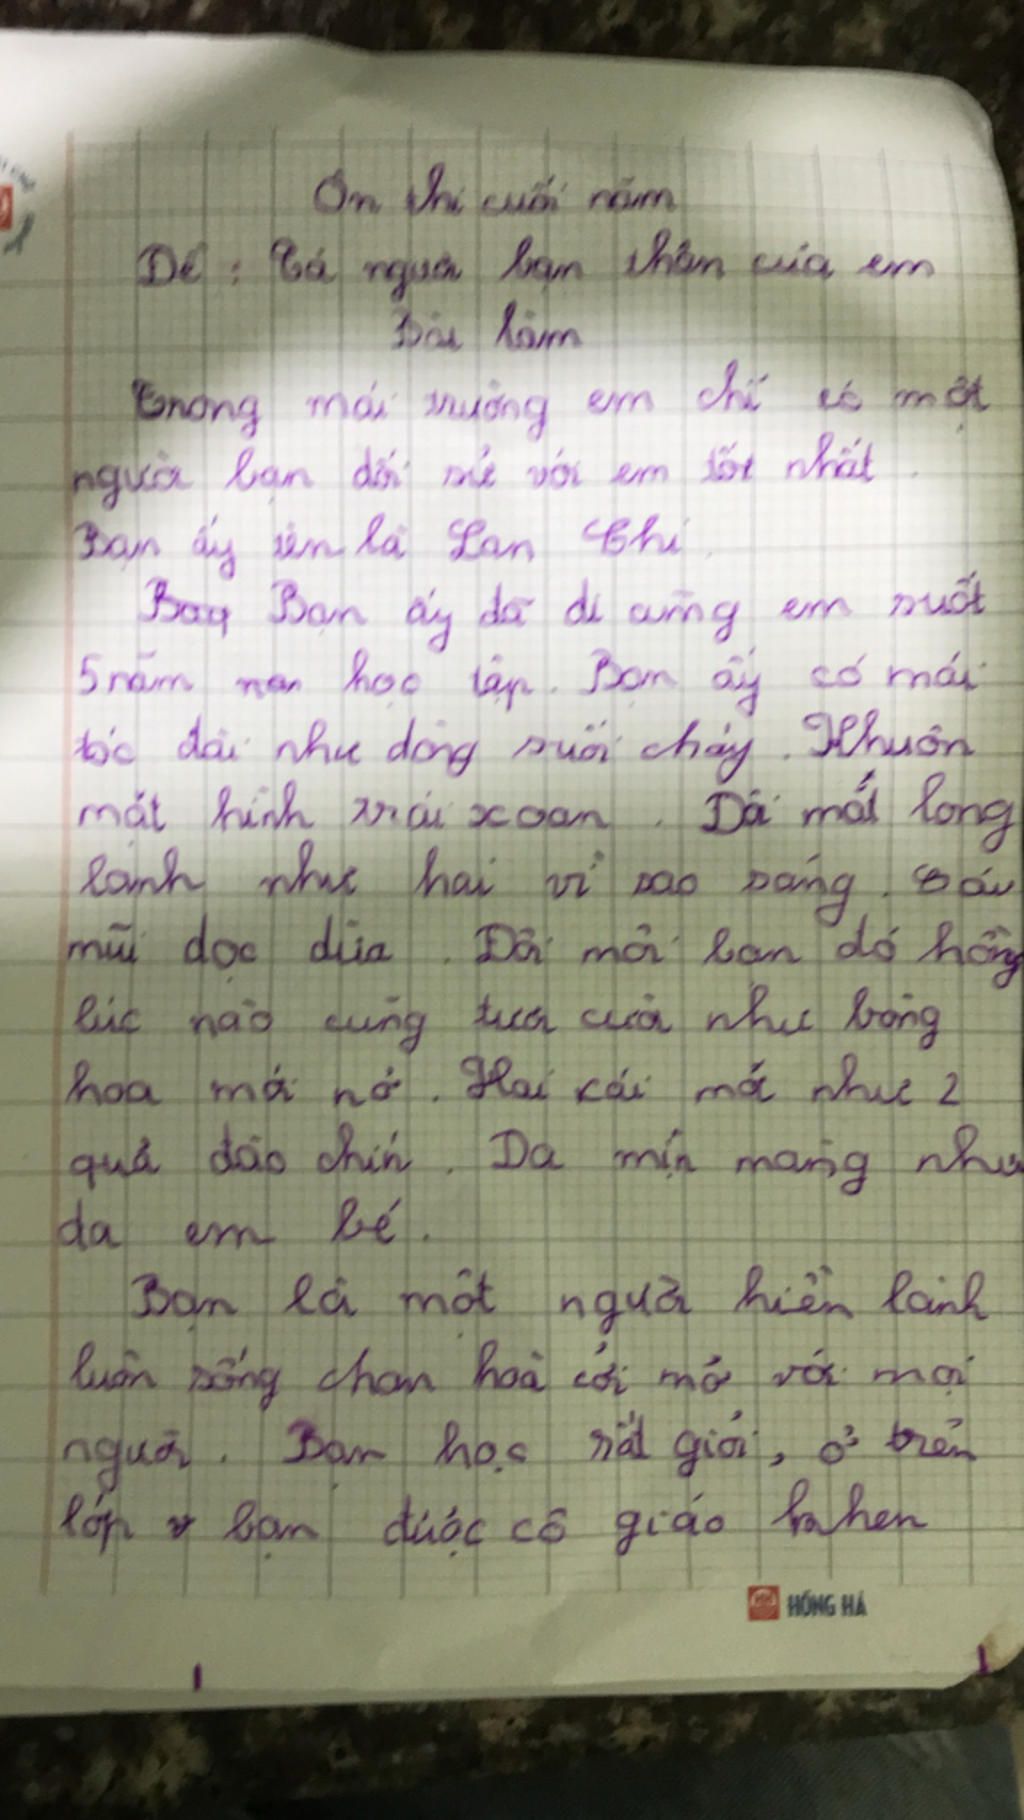 Ôn thi cuối năm
Đề : Tả người bạn thân của em
Bài làm
Trong mái trường em chỉ có một
người bạn đối sử với em tốt nhất.
Bạn ấy tên là Lan Chi.
Bạn ấy đã đi cùng em suốt
5 năm học tập. Bạn ấy có mái
tóc dài như dòng suối chảy. Khuôn
mặt hình trái xoan. Đôi mắt long
lanh như hai vì sao sáng. Sáu
mũi dọc dừa. Đôi môi bạn đỏ hồng
lúc nào cũng tươi cười như bông
hoa mới nở. Hai cái má như 2
quả đào chín. Da mịn màng như
da em bé.
Bạn là một người hiền lành
luôn sống chan hoà cởi mở với mọi
người. Bạn học rất giỏi, ở trên
lớp bạn được cô giáo khen
HỒNG HÀ